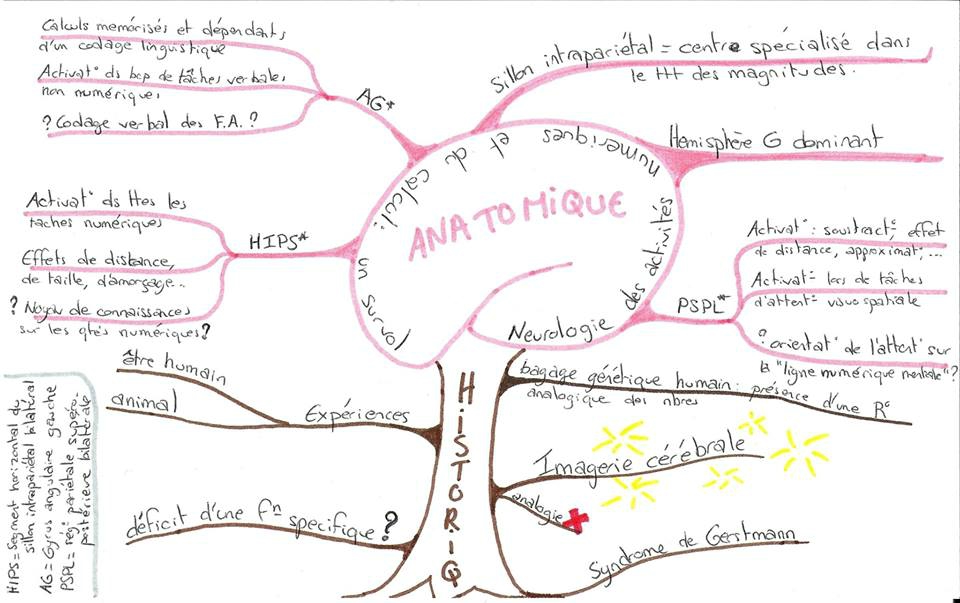 Calculs memorisés et dépendants
d'un codage linguistique
Activat° ds bcp de tâches verbales
non numériques
? Codage verbal des F.A. ?
AG*
Sillon intrapariétal = centre spécialisé dans
le ttt des magnitudes.
Hémisphère G dominant
Neurologie des activités numériques et du calcul: un survol
ANATOMIQUE
Activat° ds ttes les
taches numériques
Effets de distance,
de taille, d'amorçage...
? Noyau de connaissances
sur les qtés numériques?
HIPS*
Activat° : soustract°, effet
de distance, approximat°, ...
Activat° lors de tâches
d'attent° visuo spatiale
? orientat° de l'attent° sur
la "ligne numérique mentale" ?
PSPL*
HISTORIQ
être humain
animal
Expériences
déficit d'une fn specifique ?
bagage génétique humain : présence d'une R°
analogique des nbres
Imagerie cérébrale
analogie
Syndrome de Gerstmann
HIPS = Segment horizontal du
sillon intrapariétal bilatéral
AG = Gyrus angulaire gauche
PSPL = régi° pariétale supéro-
postérieure bilatérale